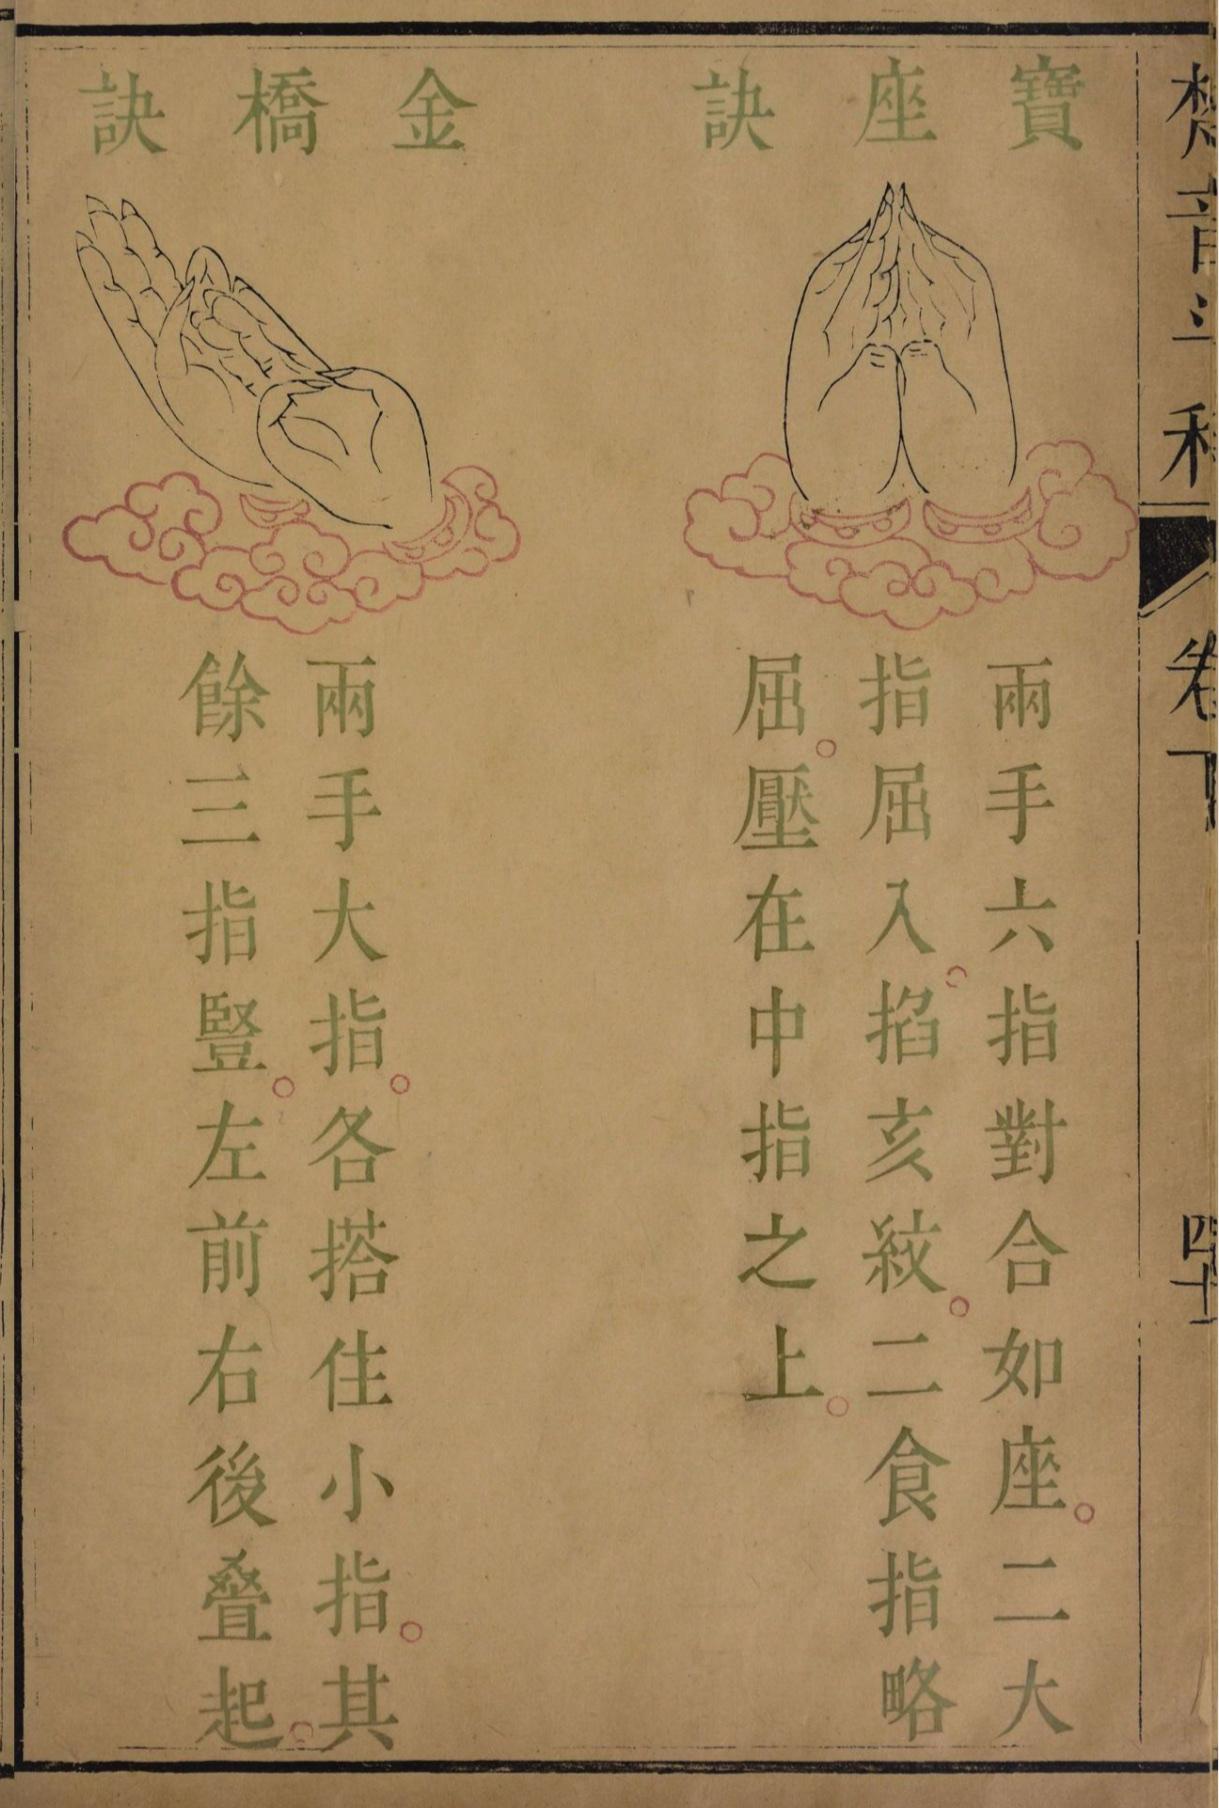 梵音斗科
卷下
四十一
寶座訣
兩手六指對合如座。二大
指屈入。掐亥紋。二食指略
屈。壓在中指之上。
金橋訣
兩手大指。各搭住小指。其
餘三指豎。左前右後疊起。